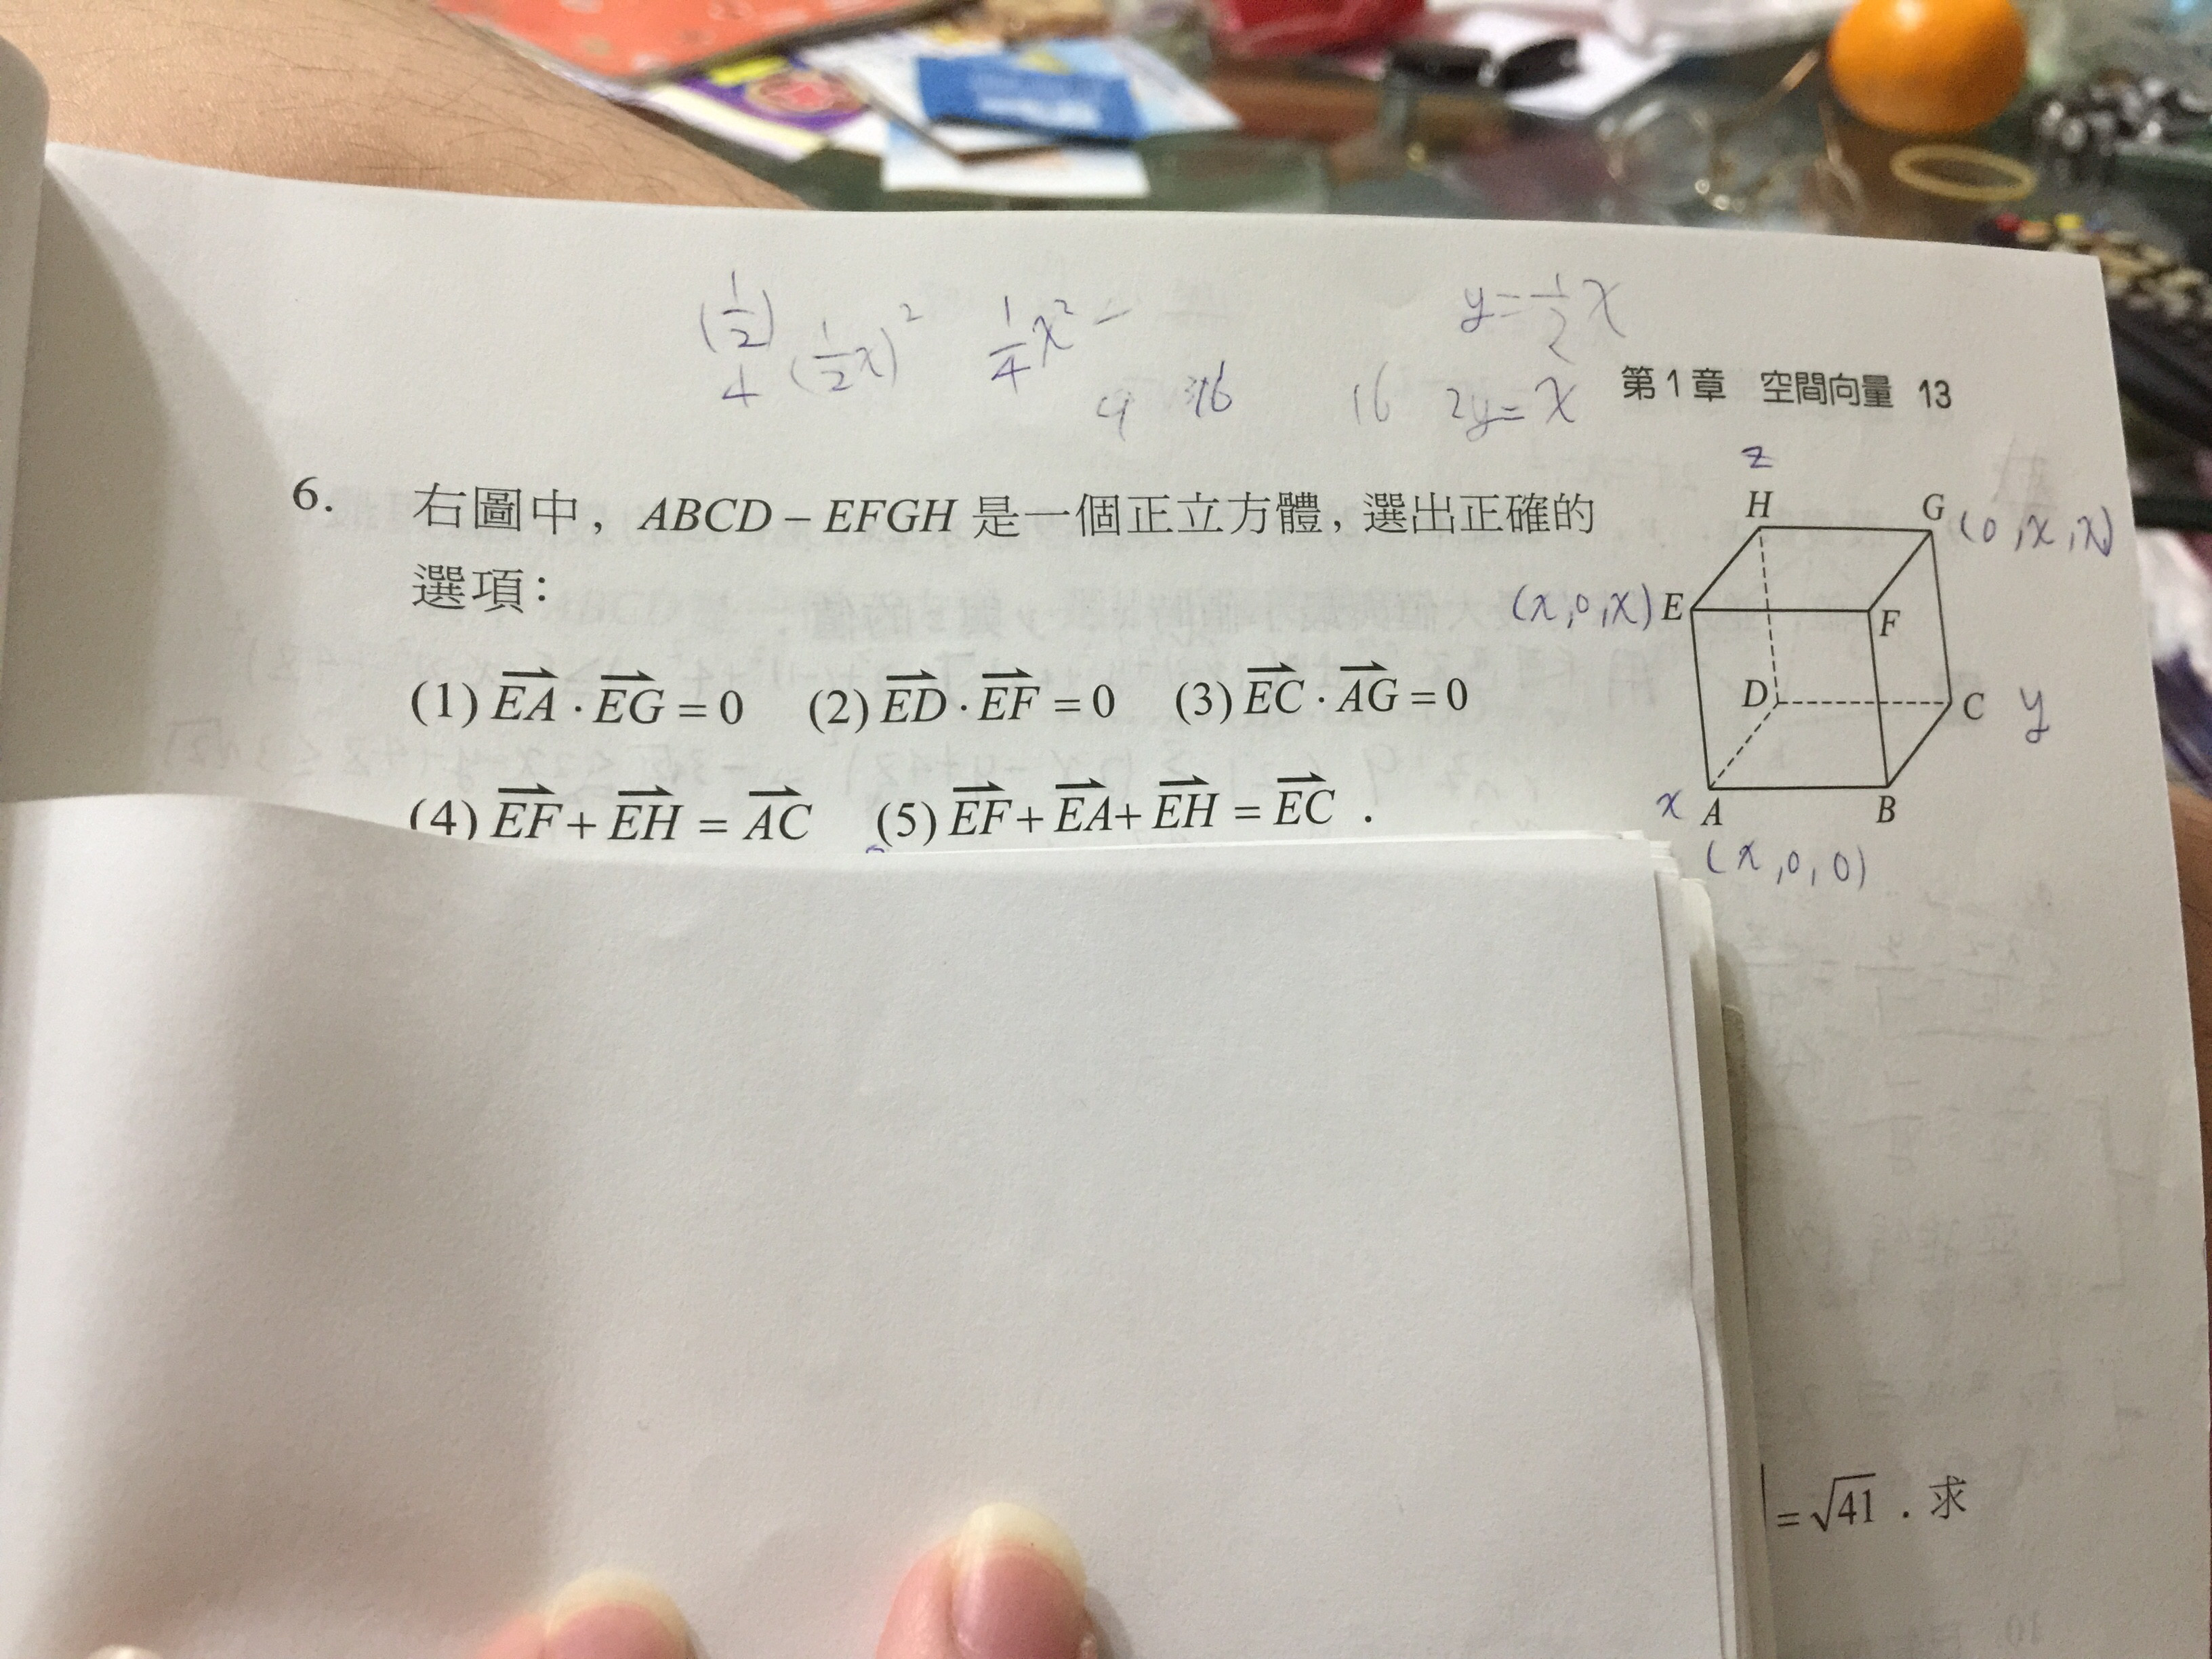 (1/2) (1/2 x)² 1/4 x² y = 1/2 x
4 9 16 16 2y = x
第1章 空間向量 13
6. 右圖中, ABCD – EFGH 是一個正立方體, 選出正確的
選項:
(1) EA⃗ · EG⃗ = 0 (2) ED⃗ · EF⃗ = 0 (3) EC⃗ · AG⃗ = 0
(4) EF⃗ + EH⃗ = AC⃗ (5) EF⃗ + EA⃗ + EH⃗ = EC⃗ .
z
H G (0, x, x)
(x, 0, x) E F
D C y
x A B
(x, 0, 0)
= √41 . 求